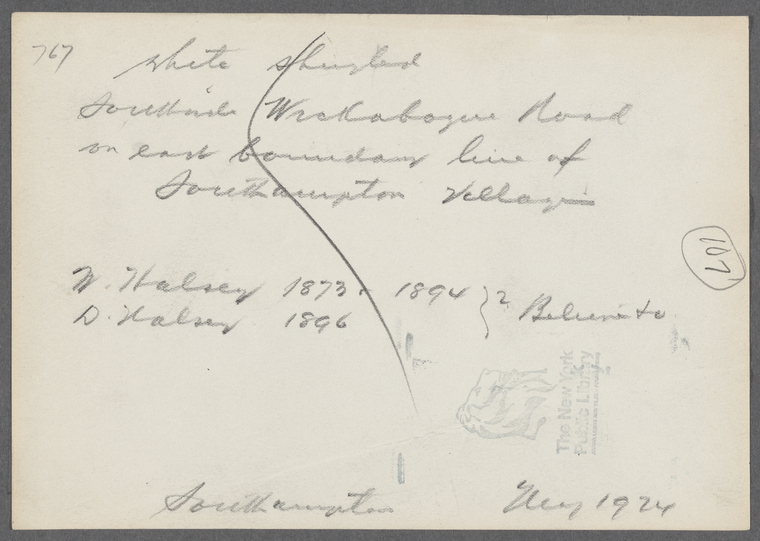 767
White Shingled
Southside Wickabogue Road
on east boundary line of
Southampton Village
W. Halsey 1873 - 1894 } ?
D. Halsey 1896
107
The New York
Public Library
Southampton
1924